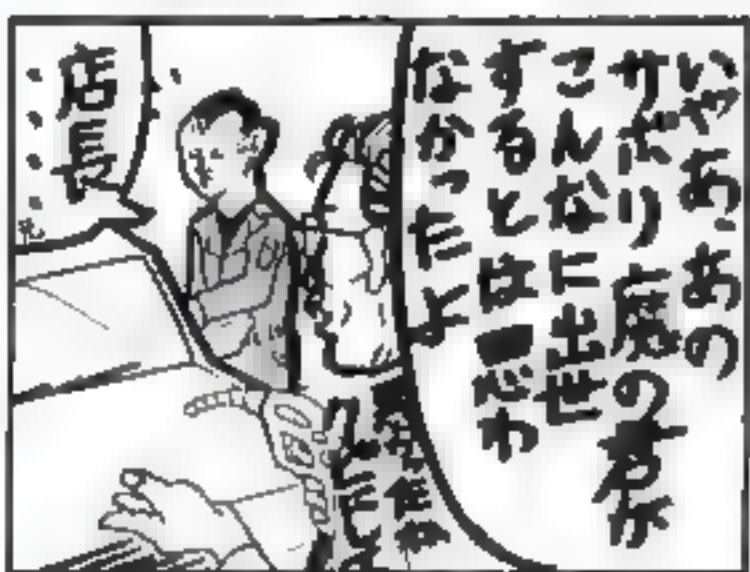 いやあ、あの
サボり魔の君が
こんなに出世
するとは思わ
なかったよ
店長
・・・・